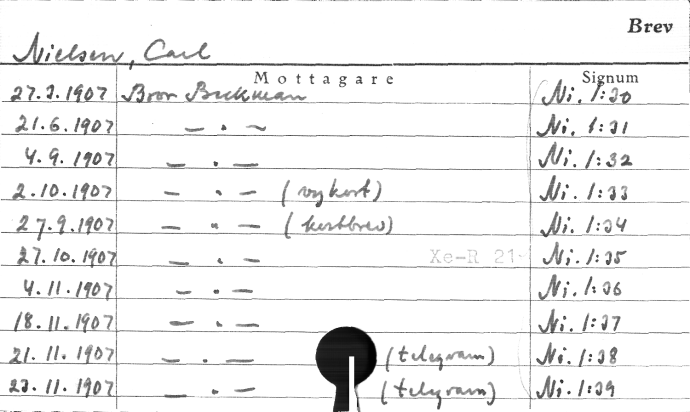 Brev
Nielsen, Carl
Mottagare Signum
27.3.1907 Bror Beckman Ni. 1:30
21.6.1907 — " — Ni. 1:31
4.9.1907 — " — Ni. 1:32
2.10.1907 — " — (vykort) Ni. 1:33
27.9.1907 — " — (kortbrev) Ni. 1:34
27.10.1907 — " — Xe-R 21- Ni. 1:35
4.11.1907 — " — Ni. 1:36
18.11.1907 — " — Ni. 1:37
21.11.1907 — " — (telegram) Ni. 1:38
23.11.1907 — " — (telegram) Ni. 1:39